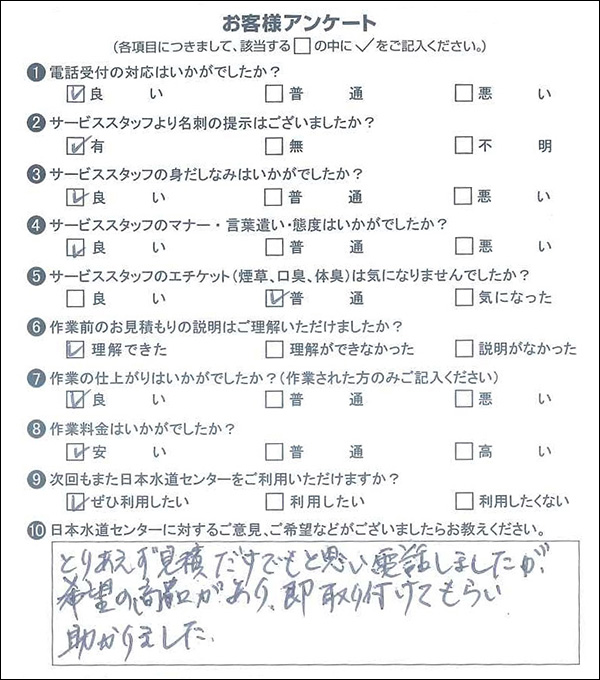 お客様アンケート
(各項目につきまして、該当する□の中に✓をご記入ください。)
❶電話受付の対応はいかがでしたか？
☑良い □普通 □悪い
❷サービススタッフより名刺の提示はございましたか？
☑有 □無 □不明
❸サービススタッフの身だしなみはいかがでしたか？
☑良い □普通 □悪い
❹サービススタッフのマナー・言葉遣い・態度はいかがでしたか？
☑良い □普通 □悪い
❺サービススタッフのエチケット(煙草、口臭、体臭)は気になりませんでしたか？
□良い ☑普通 □気になった
❻作業前のお見積もりの説明はご理解いただけましたか？
☑理解できた □理解ができなかった □説明がなかった
❼作業の仕上がりはいかがでしたか？(作業された方のみご記入ください)
☑良い □普通 □悪い
❽作業料金はいかがでしたか？
☑安い □普通 □高い
❾次回もまた日本水道センターをご利用いただけますか？
☑ぜひ利用したい □利用したい □利用したくない
❿日本水道センターに対するご意見、ご希望などがございましたらお教えください。
とりあえず見積だすでもと思い電話しましたが、
希望の商品があり、即取り付けてもらい
助かりました。